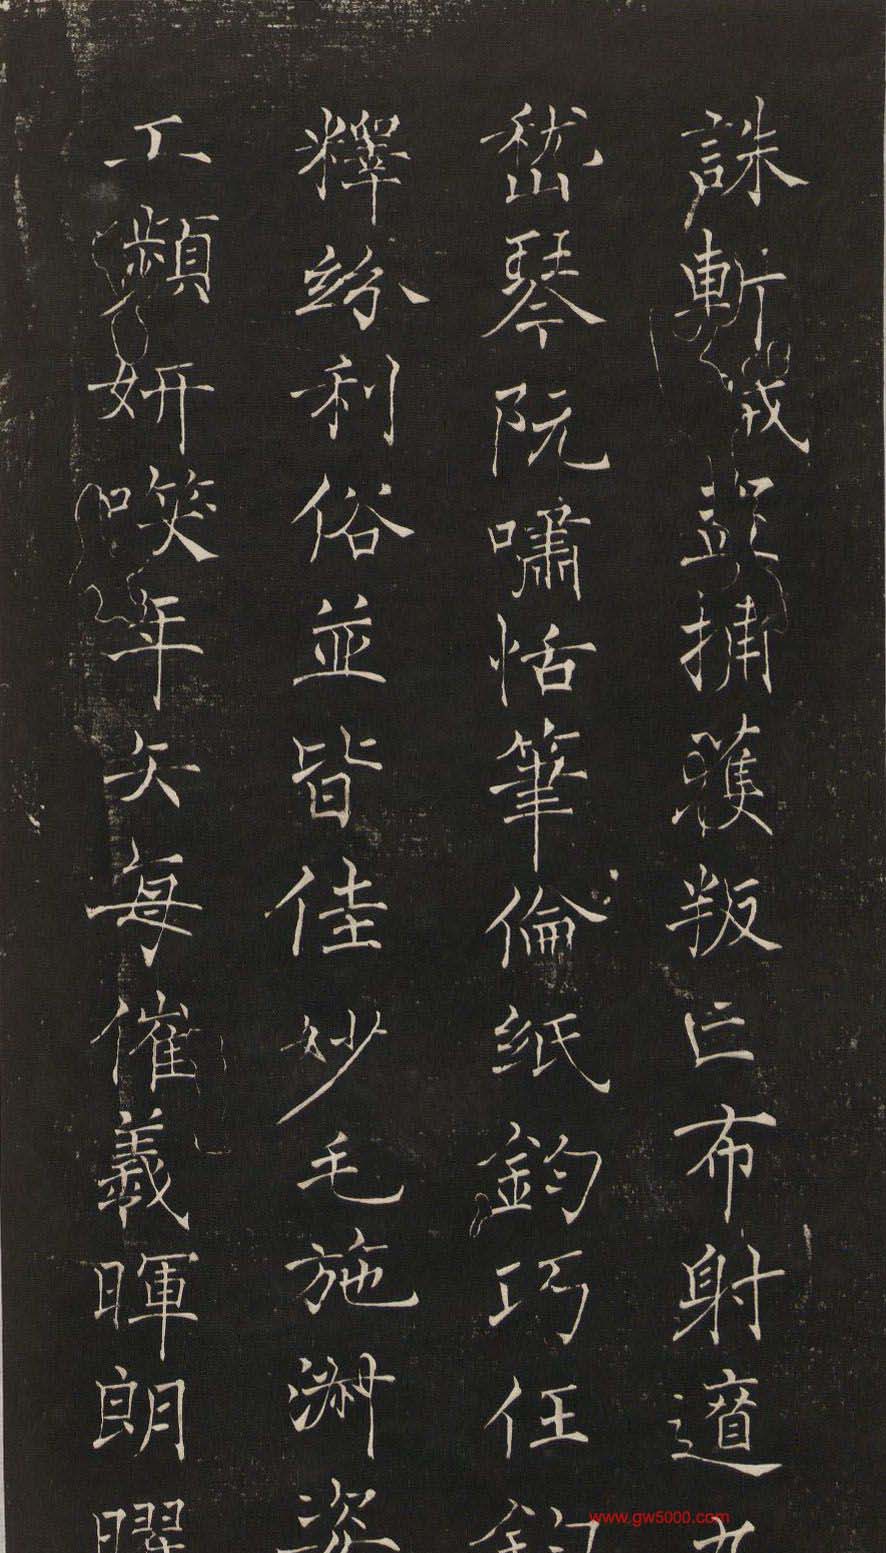 誅斬賊盜捕獲叛亡布射遼丸
嵇琴阮嘯恬筆倫紙鈞巧任釣
釋紛利俗並皆佳妙毛施淑姿
工頻妍㗛年矢每催羲暉朗曜
www.gw5000.com